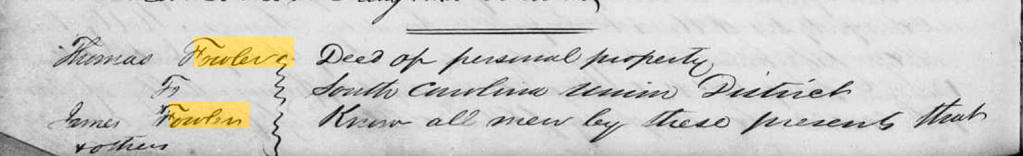 Thomas Fowler Deed of personal property
To South Carolina Union District
James Fowler Know all men by these presents that
& others